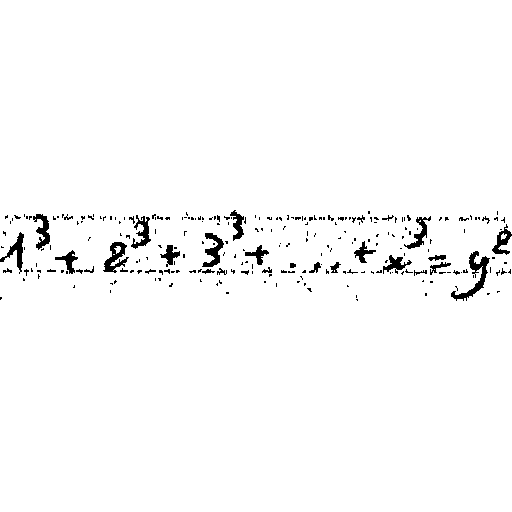 1³ + 2³ + 3³ + ... + x³ = y²